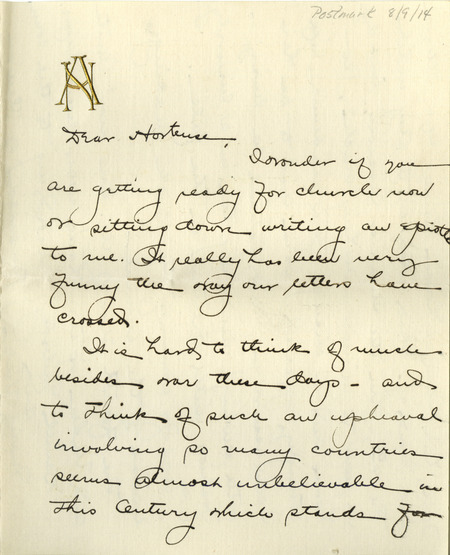 Postmark 8/9/14
AN
Dear Hortense,
I wonder if you
are getting ready for church now
or sitting down writing an epistle
to me. It really has been very
funny the way our letters have
crossed.
It is hard to think of much
besides war these days - and
to think of such an upheaval
involving so many countries
seems almost unbelievable in
this Century which stands for